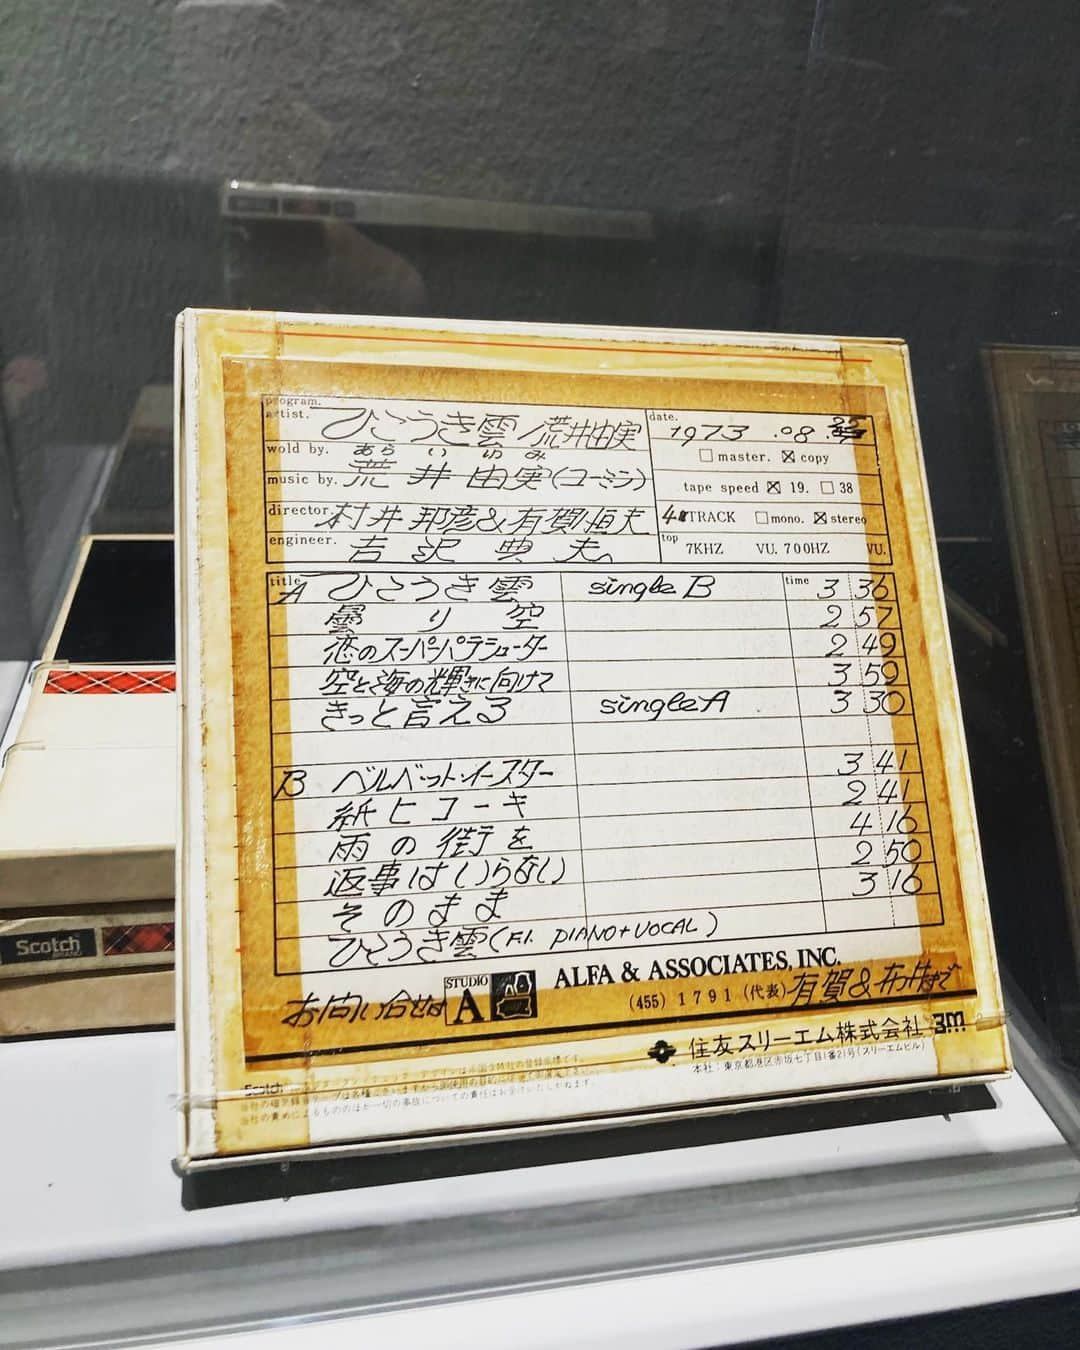 program.
artist. ひこうき雲/荒井由実
date. 1973.08.
wold by. あらい ゆみ
□ master. ☒ copy
music by. 荒井由実(ユーミン)
tape speed ☒ 19. □ 38
director. 村井邦彦&有賀恒夫
4 TRACK □ mono. ☒ stereo
engineer. 吉沢典夫
top 7KHZ VU. 700HZ VU.
title time
A ひこうき雲 single B 3 36
曇り空 2 57
恋のスーパーパラシューター 2 49
空と海の輝きに向けて 3 59
きっと言える single A 3 30
B ベルベット・イースター 3 41
紙ヒコーキ 2 41
雨の街を 4 16
返事はいらない 2 50
そのまま 3 16
ひこうき雲(F.I. PIANO+VOCAL)
STUDIO A ALFA & ASSOCIATES, INC.
お問い合せは (455) 1791 (代表) 有賀&布井まで
住友スリーエム株式会社 3M
本社:東京都港区赤坂七丁目1番21号(スリーエムビル)
Scotch
当社の責めによるもののほか一切の事故についての責任はお受けいたしかねます。
Scotch
BRAND